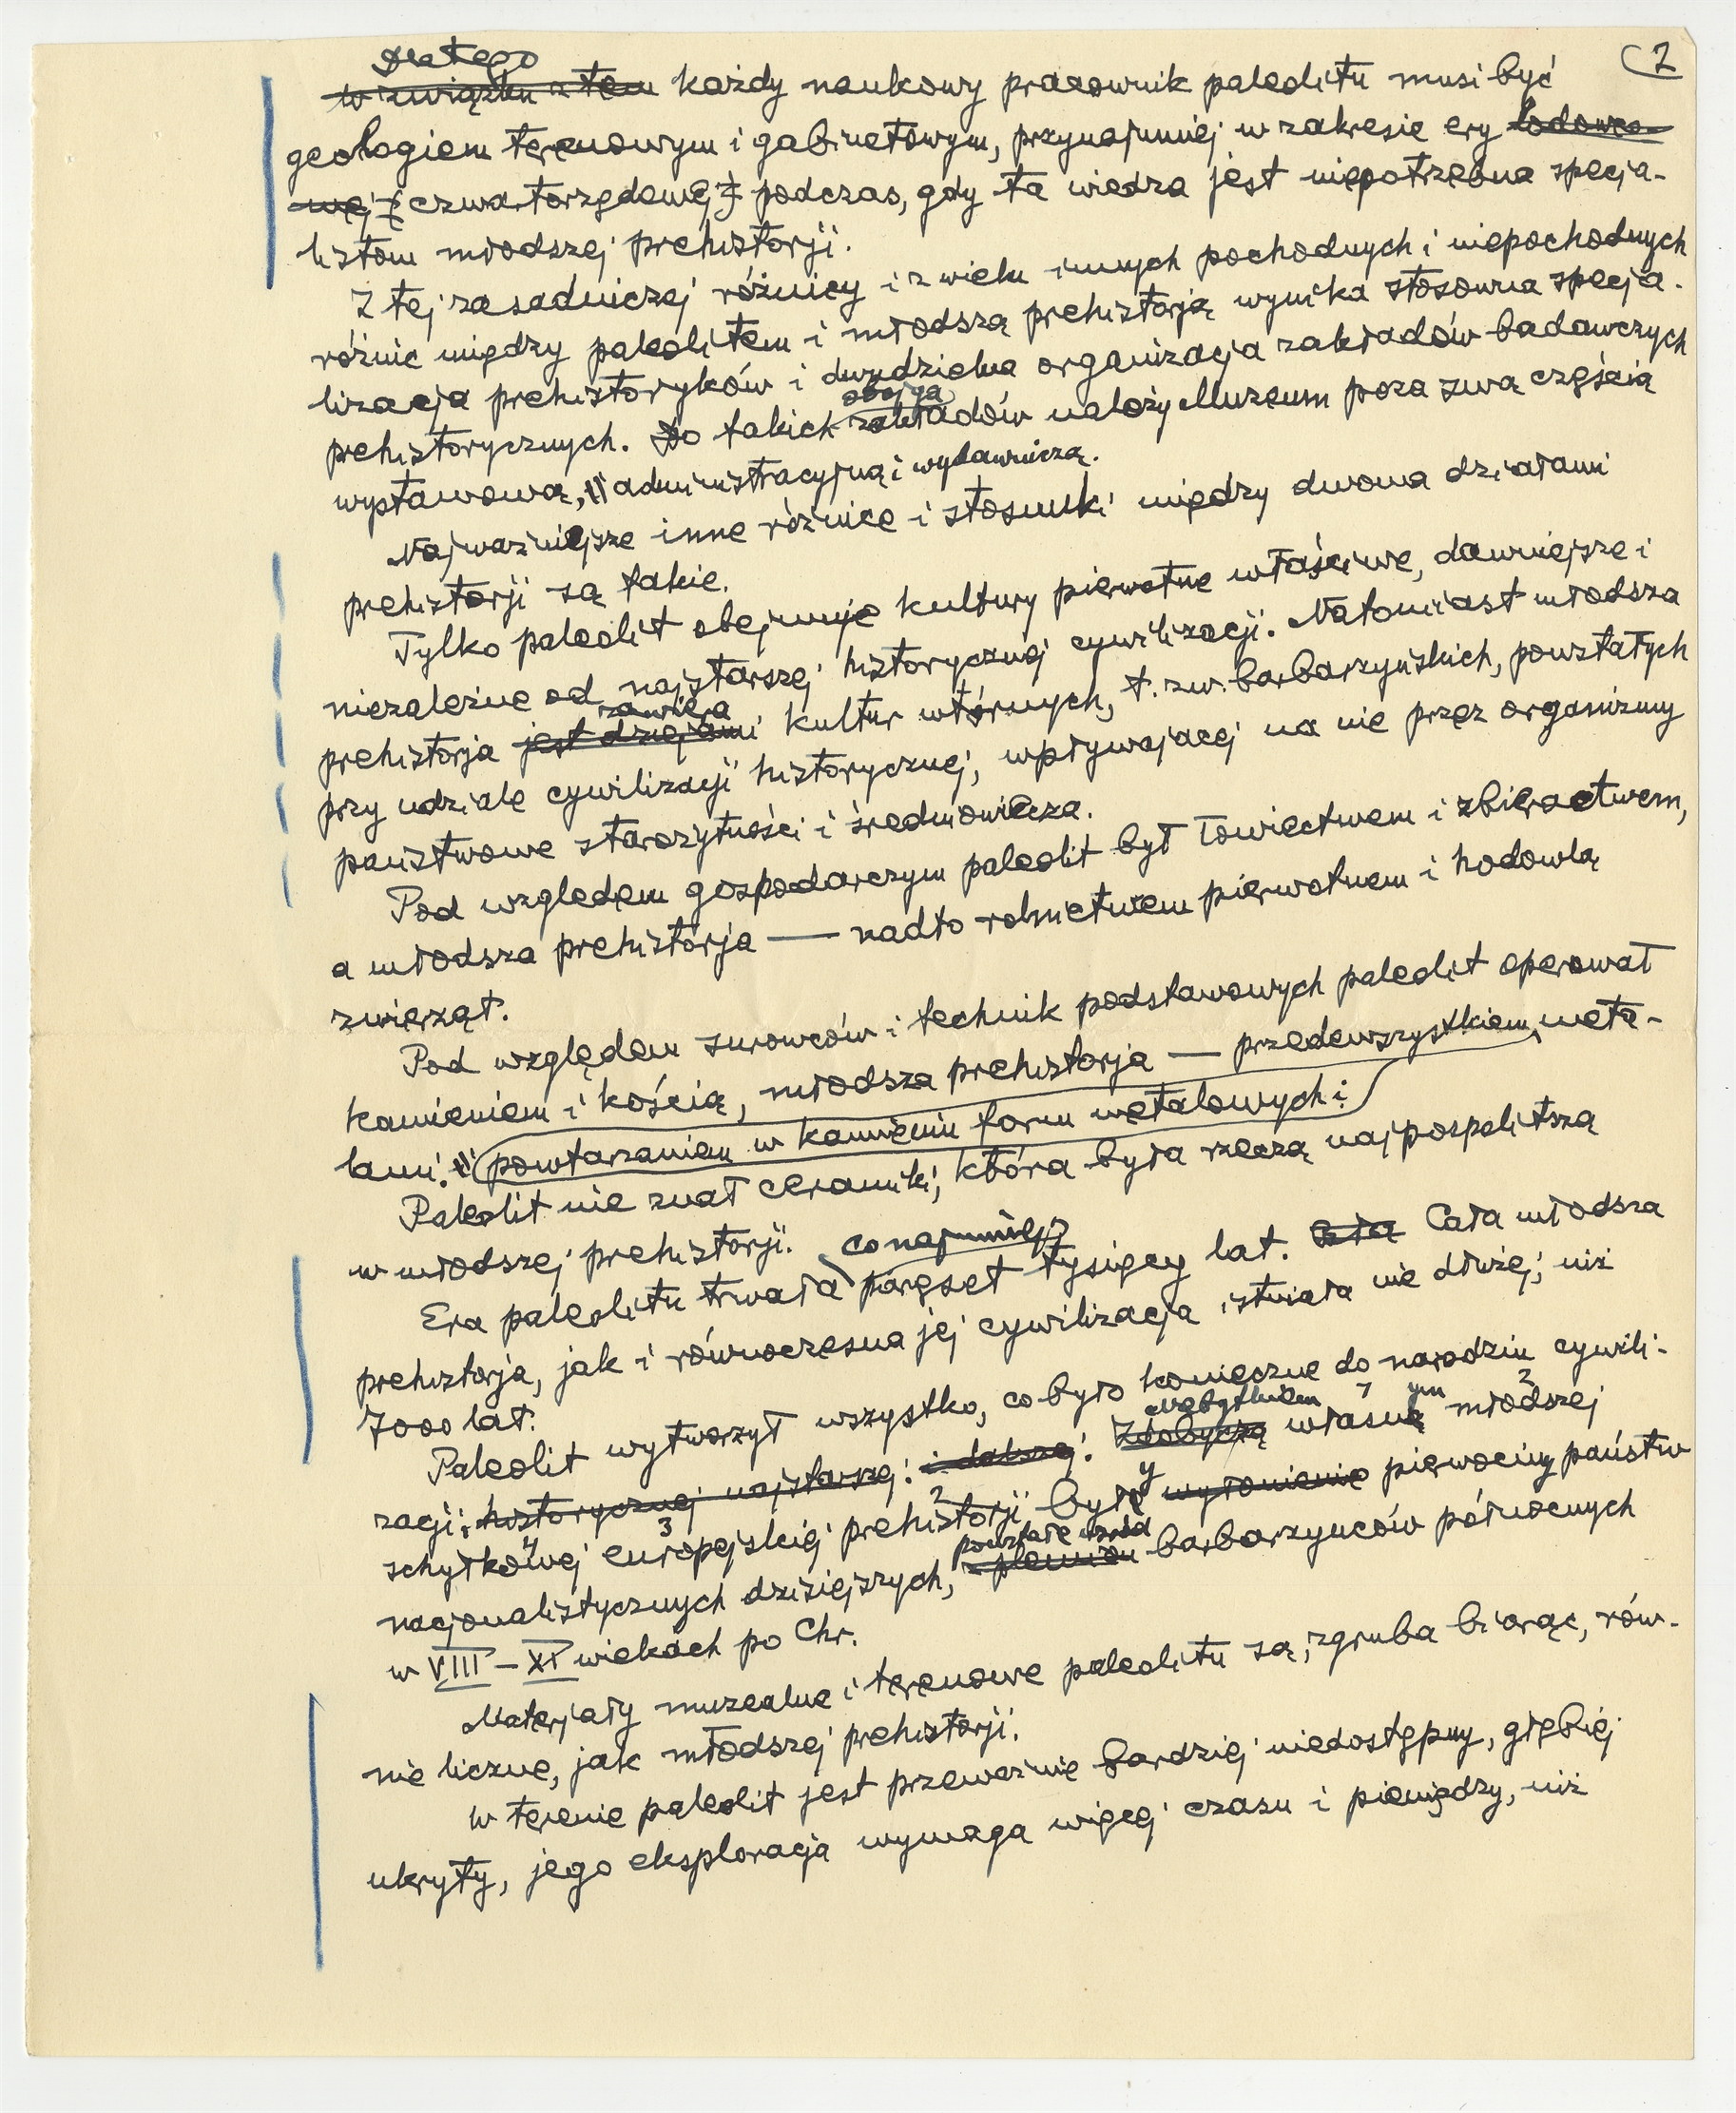 2
Dlatego
w związku z tem każdy naukowy pracownik paleolitu musi być
geologiem terenowym i gabinetowym, przynajmniej w zakresie ery lodowco-
wej [czwartorzędowej] podczas, gdy ta wiedza jest niepotrzebna specja-
listom młodszej prehistorji.
Z tej zasadniczej różnicy i z wielu innych pochodnych i niepochodnych
różnic między paleolitem i młodszą prehistorją wynika stosowna specja-
lizacja prehistoryków i dwudzielna organizacja zakładów badawczych
obojga
prehistorycznych. Do takich zakładów należy Muzeum poza swą częścią
wystawową, administracyjną i wydawniczą.
Najważniejsze inne różnice i stosunki między dwoma działami
prehistorji są takie.
Tylko paleolit obejmuje kultury pierwotne właściwe, dawniejsze i
niezależne od najstarszej historycznej cywilizacji. Natomiast młodsza
zawiera
prehistorja jest dziejami kultur wtórnych, t. zw. barbarzyńskich, powstałych
przy udziale cywilizacji historycznej, wpływającej na nie przez organizmy
państwowe starożytności i średniowiecza.
Pod względem gospodarczym paleolit był łowiectwem i zbieractwem,
a młodsza prehistorja — nadto rolnictwem pierwotnem i hodowlą
zwierząt.
Pod względem surowców i technik podstawowych paleolit operował
kamieniem i kością, młodsza prehistorja — przedewszystkiem meta-
lami. powtarzaniem w kamieniu form metalowych i
Paleolit nie znał ceramiki, która była rzeczą najpospolitszą
w młodszej prehistorji.
co najmniej
Era paleolitu trwała paręset tysięcy lat. Cała Cała młodsza
prehistorja, jak i równoczesna jej cywilizacja istniała nie dłużej, niż
7000 lat.
Paleolit wytworzył wszystko, co było konieczne do narodzin cywili-
nabytkiem 1 ym 2
zacji. historycznej najstarszej. i dalszej. Zdobyczą własną młodszej
4 3 2 y
schyłkowej europejskiej prehistorji były wyłonienie pierwociny państw
powstałe wśród
nacjonalistycznych dzisiejszych, z plemion barbarzyńców północnych
w VIII – XI wiekach po Chr.
Materjały muzealne i terenowe paleolitu są, zgruba biorąc, rów-
nie liczne, jak młodszej prehistorji.
W terenie paleolit jest przeważnie bardziej niedostępny, głębiej
ukryty, jego eksploracja wymaga więcej czasu i pieniędzy, niż